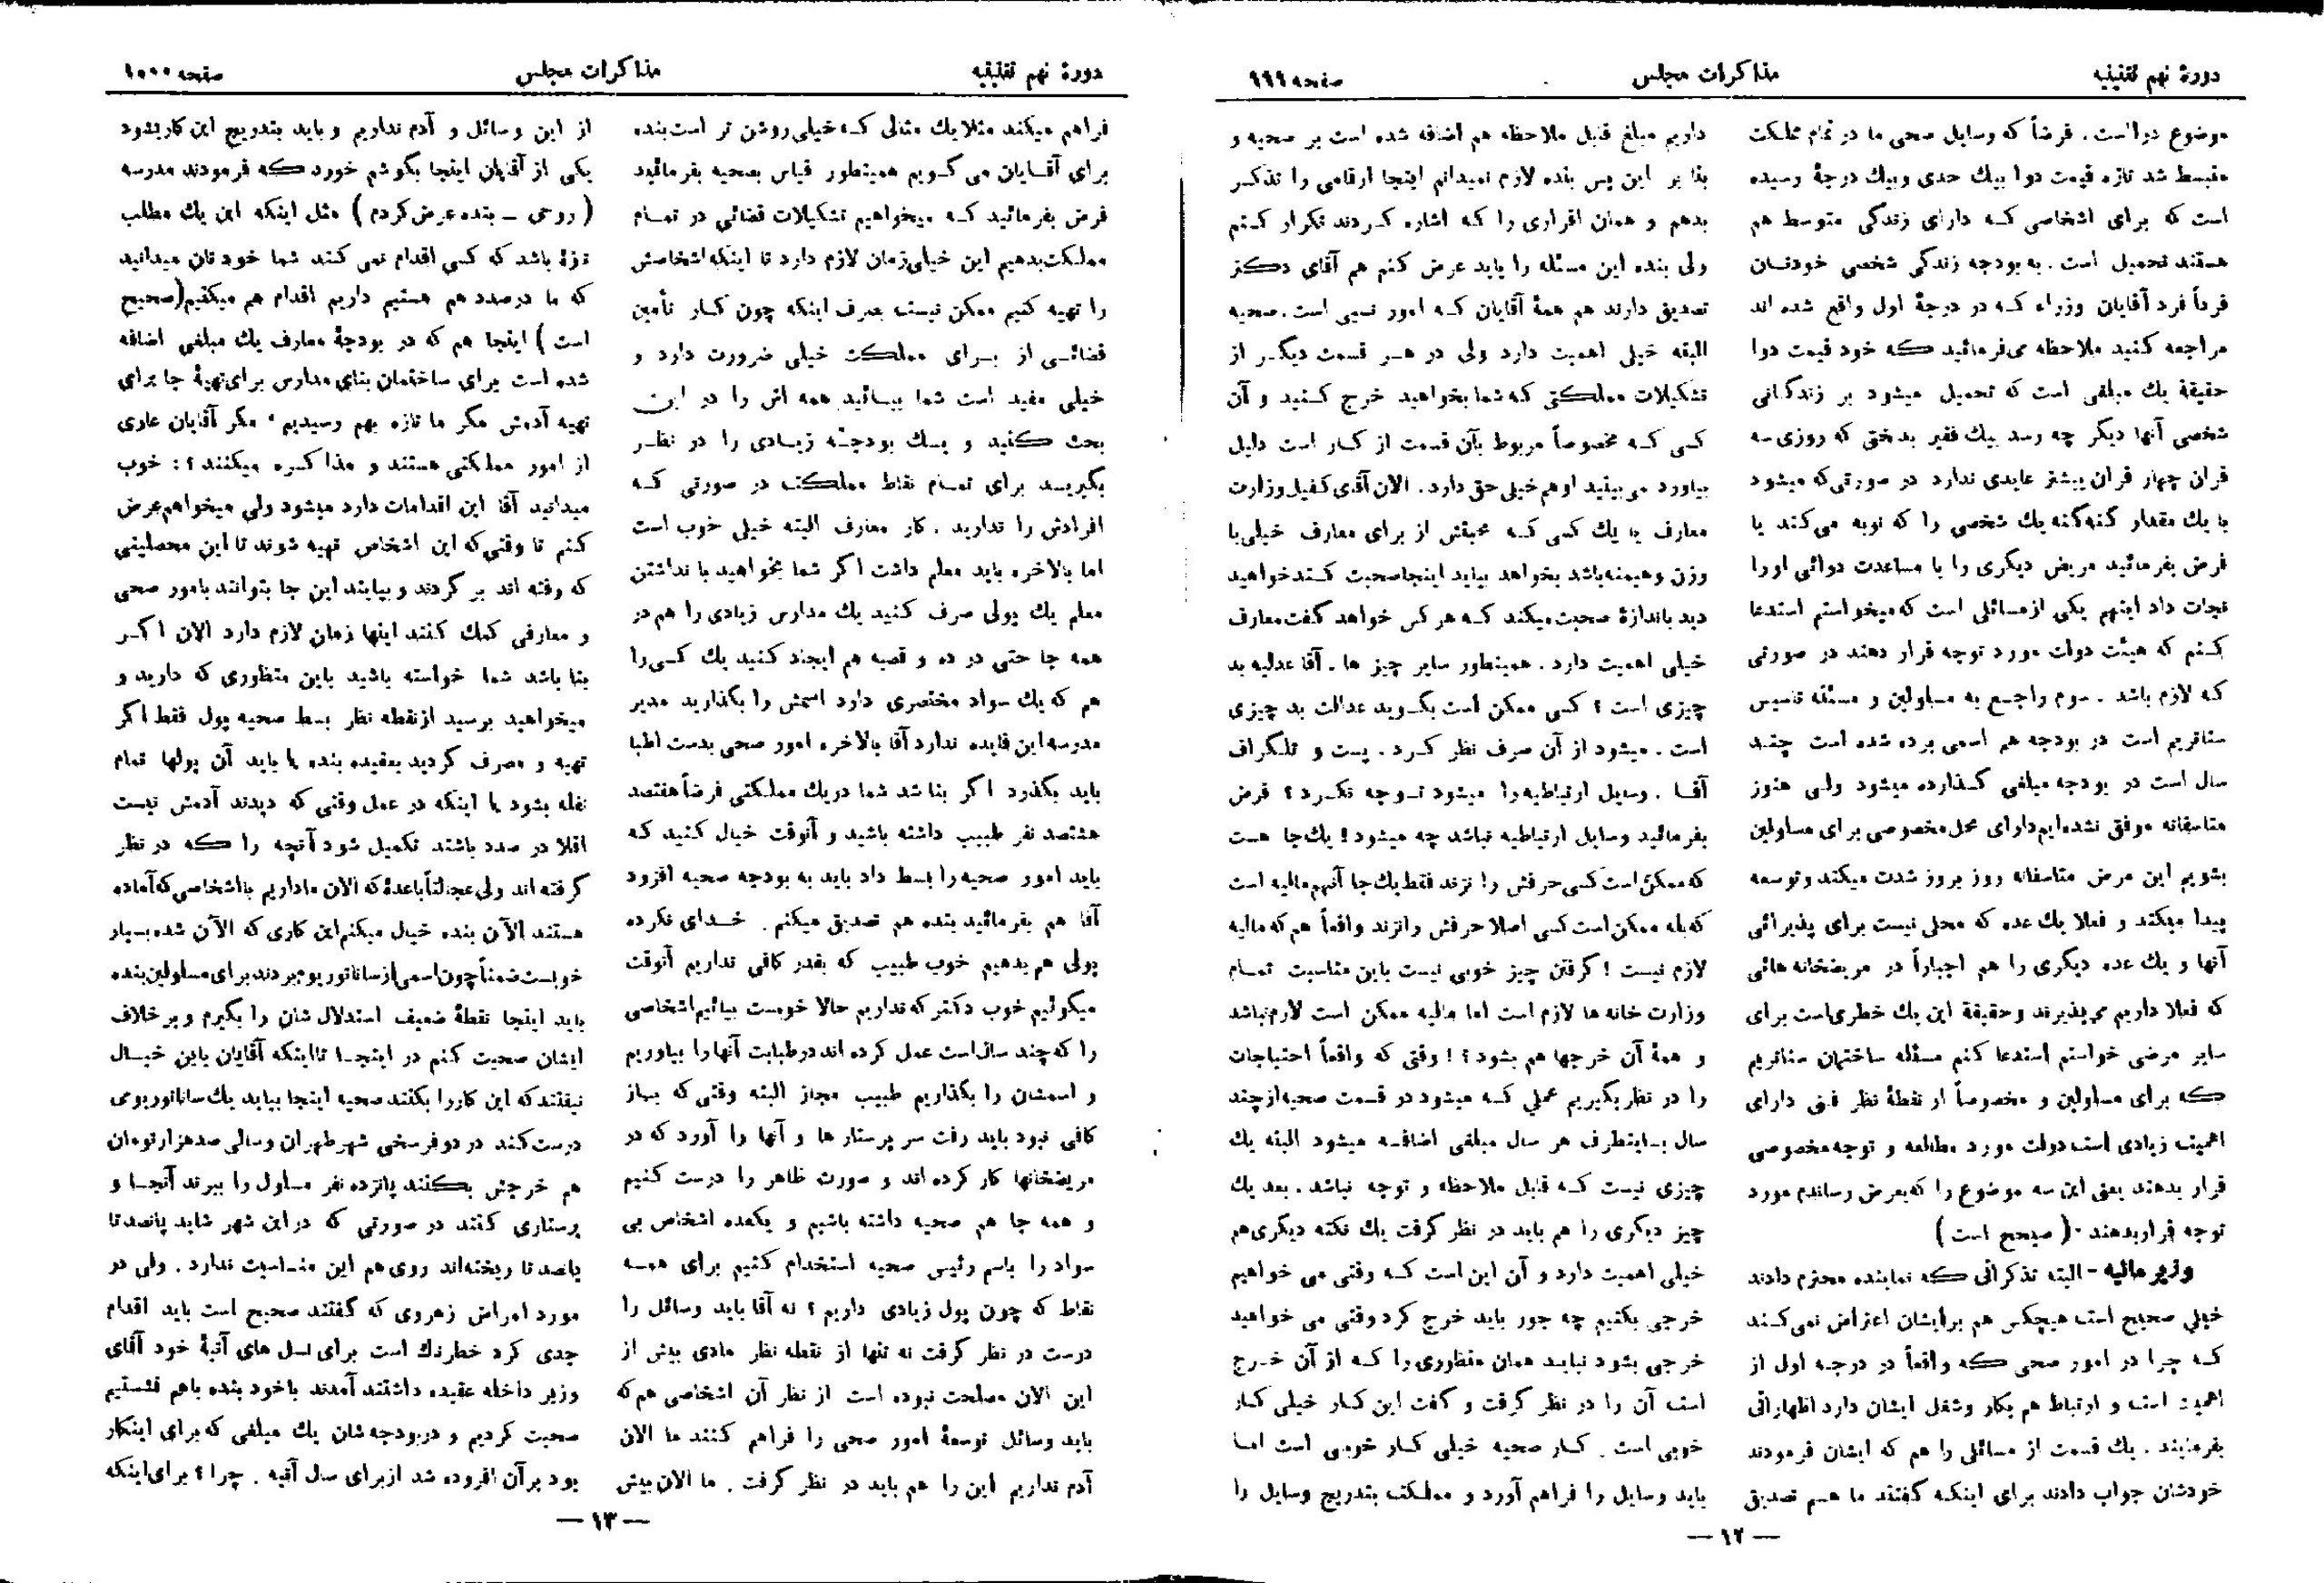 دورهٔ نهم تقنینیه
مذاکرات مجلس
صفحه ۹۹۹
موضوع دوا است . فرضاً که وسایل صحی ما در تمام مملکت
منبسط شد تازه قیمت دوا بیك حدی و بیك درجهٔ رسیده
است که برای اشخاصی که دارای زندگی متوسط هم
هستند تحمیل است . به بودجه زندگی شخصی خودتان
فرداً فرد آقایان وزراء که در درجهٔ اول واقع شده اند
مراجعه کنید ملاحظه می‌فرمائید که خود قیمت دوا
حقیقة یك مبلغی است که تحمیل میشود بر زندگانی
شخصی آنها دیگر چه رسد بیك فقیر بدبختی که روزی سه
قران چهار قران بیشتر عایدی ندارد در صورتی که میشود
با یك مقدار گنه گنه یك شخصی را که نوبه می‌کند یا
فرض بفرمائید مریض دیگری را با مساعدت دوائی او را
نجات داد اینهم یکی از مسائلی است که میخواستم استدعا
کنم که هیئت دولت مورد توجه قرار دهند در صورتی
که لازم باشد . سوم راجع به مسلولین و مسئله تاسیس
سناتریم است در بودجه هم اسمی برده شده است چند
سال است در بودجه مبلغی گذارده میشود ولی هنوز
متاسفانه موفق نشده‌ایم دارای محل مخصوصی برای مسلولین
بشویم این مرض متاسفانه روز بروز شدت میکند و توسعه
پیدا میکند و فعلا یك عده که محلی نیست برای پذیرائی
آنها و یك عده دیگری را هم اجباراً در مریضخانه هائی
که فعلا داریم می‌پذیرند و حقیقة این یك خطری است برای
سایر مرضی خواستم استدعا کنم مسئله ساختمان سناتریم
که برای مسلولین و مخصوصاً از نقطهٔ نظر فنی دارای
اهمیت زیادی است دولت مورد مطالعه و توجه مخصوصی
قرار بدهند یعنی این سه موضوع را که بعرض رساندم مورد
توجه قرار بدهند . ( صحیح است )
وزیر مالیه - البته تذکراتی که نماینده محترم دادند
خیلی صحیح است هیچکس هم برایشان اعتراض نمی‌کند
که چرا در امور صحی که واقعاً در درجه اول از
اهمیت است و ارتباط هم بکار و شغل ایشان دارد اظهاراتی
بفرمایند . یك قسمت از مسائلی را هم که ایشان فرمودند
خودشان جواب دادند برای اینکه گفتند ما هم تصدیق
داریم مبلغ قابل ملاحظه هم اضافه شده است بر صحیه و
بنا بر این پس بنده لازم نمیدانم اینجا ارقامی را تذکر
بدهم و همان اقراری را که اشاره کردند تکرار کنم
ولی بنده این مسئله را باید عرض کنم هم آقای دکتر
تصدیق دارند هم همهٔ آقایان که امور نسبی است . صحیه
البته خیلی اهمیت دارد ولی در هر قسمت دیگر از
تشکیلات مملکتی که شما بخواهید خرج کنید و آن
کسی که مخصوصاً مربوط بآن قسمت از کار است دلیل
بیاورد می بینید او هم خیلی حق دارد . الان آقای کفیل وزارت
معارف یا یك کسی که محبتش از برای معارف خیلی با
وزن و هیمنه باشد بخواهد بیاید اینجا صحبت کند خواهید
دید باندازهٔ صحبت میکند که هر کس خواهد گفت معارف
خیلی اهمیت دارد . همینطور سایر چیز ها . آقا عدلیه بد
چیزی است ؟ کسی ممکن است بگوید عدالت بد چیزی
است . میشود از آن صرف نظر کرد . پست و تلگراف
آقا . وسایل ارتباطیه را میشود توجه نکرد ؟ فرض
بفرمائید وسایل ارتباطیه نباشد چه میشود ! یك جا هست
که ممکن است کسی حرفش را نزند فقط یك جا آنهم مالیه است
که بله ممکن است کسی اصلا حرفش را نزند واقعاً هم که مالیه
لازم نیست ! گرفتن چیز خوبی نیست باین مناسبت تمام
وزارت خانه ها لازم است اما مالیه ممکن است لازم نباشد
و همهٔ آن خرجها هم بشود ؟ ! وقتی که واقعاً احتیاجات
را در نظر بگیریم عملی که میشود در قسمت صحیه از چند
سال باینطرف هر سال مبلغی اضافه میشود البته یك
چیزی نیست که قابل ملاحظه و توجه نباشد . بعد یك
چیز دیگری را هم باید در نظر گرفت یك نکته دیگری هم
خیلی اهمیت دارد و آن این است که وقتی می خواهیم
خرجی بکنیم چه جور باید خرج کرد وقتی می خواهید
خرجی بشود نباید همان منظوری را که از آن خرج
است آن را در نظر گرفت و گفت این کار خیلی کار
خوبی است . کار صحیه خیلی کار خوبی است اما
باید وسایل را فراهم آورد و مملکت بتدریج وسایل را
— ۱۲ —
دورهٔ نهم تقنینیه
مذاکرات مجلس
صفحه ۱۰۰۰
فراهم میکند مثلا یك مثالی که خیلی روشن تر است بنده
برای آقایان می گویم همینطور قیاس بصحیه بفرمائید
فرض بفرمائید که میخواهیم تشکیلات قضائی در تمام
مملکت بدهیم این خیلی زمان لازم دارد تا اینکه اشخاصش
را تهیه کنیم ممکن نیست بصرف اینکه چون کار تأمین
قضائی از برای مملکت خیلی ضرورت دارد و
خیلی مفید است شما بیائید همه اش را در این
بحث کنید و یك بودجهٔ زیادی را در نظر
بگیرید برای تمام نقاط مملکت در صورتی که
افرادش را ندارید . کار معارف البته خیلی خوب است
اما بالاخره باید معلم داشت اگر شما بخواهید با نداشتن
معلم یك پولی صرف کنید یك مدارس زیادی را هم در
همه جا حتی در ده و قصبه هم ایجاد کنید یك کسی را
هم که یك سواد مختصری دارد اسمش را بگذارید مدیر
مدرسه این فایده ندارد آقا بالاخره امور صحی بدست اطبا
باید بگذرد اگر بنا شد شما در یك مملکتی فرضاً هفتصد
هشتصد نفر طبیب داشته باشید و آنوقت خیال کنید که
باید امور صحیه را بسط داد باید به بودجه صحیه افزود
آقا هم بفرمائید بنده هم تصدیق میکنم . خدای نکرده
پولی هم بدهیم خوب طبیب که بقدر کافی نداریم آنوقت
میگوئیم خوب دکتر که نداریم حالا خوبست بیائیم اشخاصی
را که چند سال است عمل کرده اند در طبابت آنها را بیاوریم
و اسمشان را بگذاریم طبیب مجاز البته وقتی که بیاز
کافی نبود باید رفت سر پرستار ها و آنها را آورد که در
مریضخانها کار کرده اند و صورت ظاهر را درست کنیم
و همه جا هم صحیه داشته باشیم و یکعده اشخاص بی
سواد را باسم رئیس صحیه استخدام کنیم برای همه
نقاط که چون پول زیادی داریم ؟ نه آقا باید وسائل را
درست در نظر گرفت نه تنها از نقطه نظر مادی بیش از
این الان مصلحت نبوده است از نظر آن اشخاصی هم که
باید وسائل توسعهٔ امور صحی را فراهم کنند ما الان
آدم نداریم این را هم باید در نظر گرفت . ما الان بیش
از این وسائل و آدم نداریم و باید بتدریج این کار بشود
یکی از آقایان اینجا بگوشم خورد که فرمودند مدرسه
( روحی - بنده عرض کردم ) مثل اینکه این یك مطلب
تازهٔ باشد که کسی اقدام نمی کند شما خودتان میدانید
که ما درصدد هم هستیم داریم اقدام هم میکنیم ( صحیح
است ) اینجا هم که در بودجهٔ معارف یك مبلغی اضافه
شده است برای ساختمان بنای مدارس برای تهیهٔ جا برای
تهیه آدمش مگر ما تازه بهم رسیدیم ، مگر آقایان عاری
از امور مملکتی هستند و مذاکره میکنند ؟ : خوب
میدانید آقا این اقدامات دارد میشود ولی میخواهم عرض
کنم تا وقتی که این اشخاص تهیه شوند تا این محصلینی
که رفته اند بر گردند و بیایند این جا بتوانند بامور صحی
و معارفی کمك کنند اینها زمان لازم دارد الان اگر
بنا باشد شما خواسته باشید باین منظوری که دارید و
میخواهید برسید از نقطه نظر بسط صحیه پول فقط اگر
تهیه و مصرف گردید بعقیده بنده یا باید آن پولها تمام
تفله بشود یا اینکه در عمل وقتی که دیدند آدمش نیست
اقلا در صدد باشند تکمیل شود آنچه را که در نظر
گرفته اند ولی عجالتاً با عدهٔ که الان ما داریم با اشخاصی که آماده
هستند الآن بنده خیال میکنم این کاری که الآن شده بسیار
خوبست ضمناً چون اسمی از ساناتوریوم بردند برای مسلولین بنده
باید اینجا نقطهٔ ضعیف استدلال شان را بگیرم و بر خلاف
ایشان صحبت کنم در اینجا تا اینکه آقایان باین خیال
نیفتند که این کار را بکنند صحیه اینجا بیاید یك ساناتوریومی
درست کند در دو فرسخی شهر طهران و سالی صد هزار تومان
هم خرجش بکنند پانزده نفر مسلول را ببرند آنجا و
پرستاری کنند در صورتی که در این شهر شاید پانصد تا
پانصد تا ریخته‌اند روی هم این مناسبت ندارد . ولی در
مورد امراض زهروی که گفتند صحیح است باید اقدام
جدی کرد خطرناك است برای نسل های آتیهٔ خود آقای
وزیر داخله عقیده داشتند آمدند با خود بنده باهم نشستیم
صحبت کردیم و در بودجه شان یك مبلغی که برای اینکار
بود بر آن افزوده شد از برای سال آتیه . چرا ؟ برای اینکه
— ۱۳ —